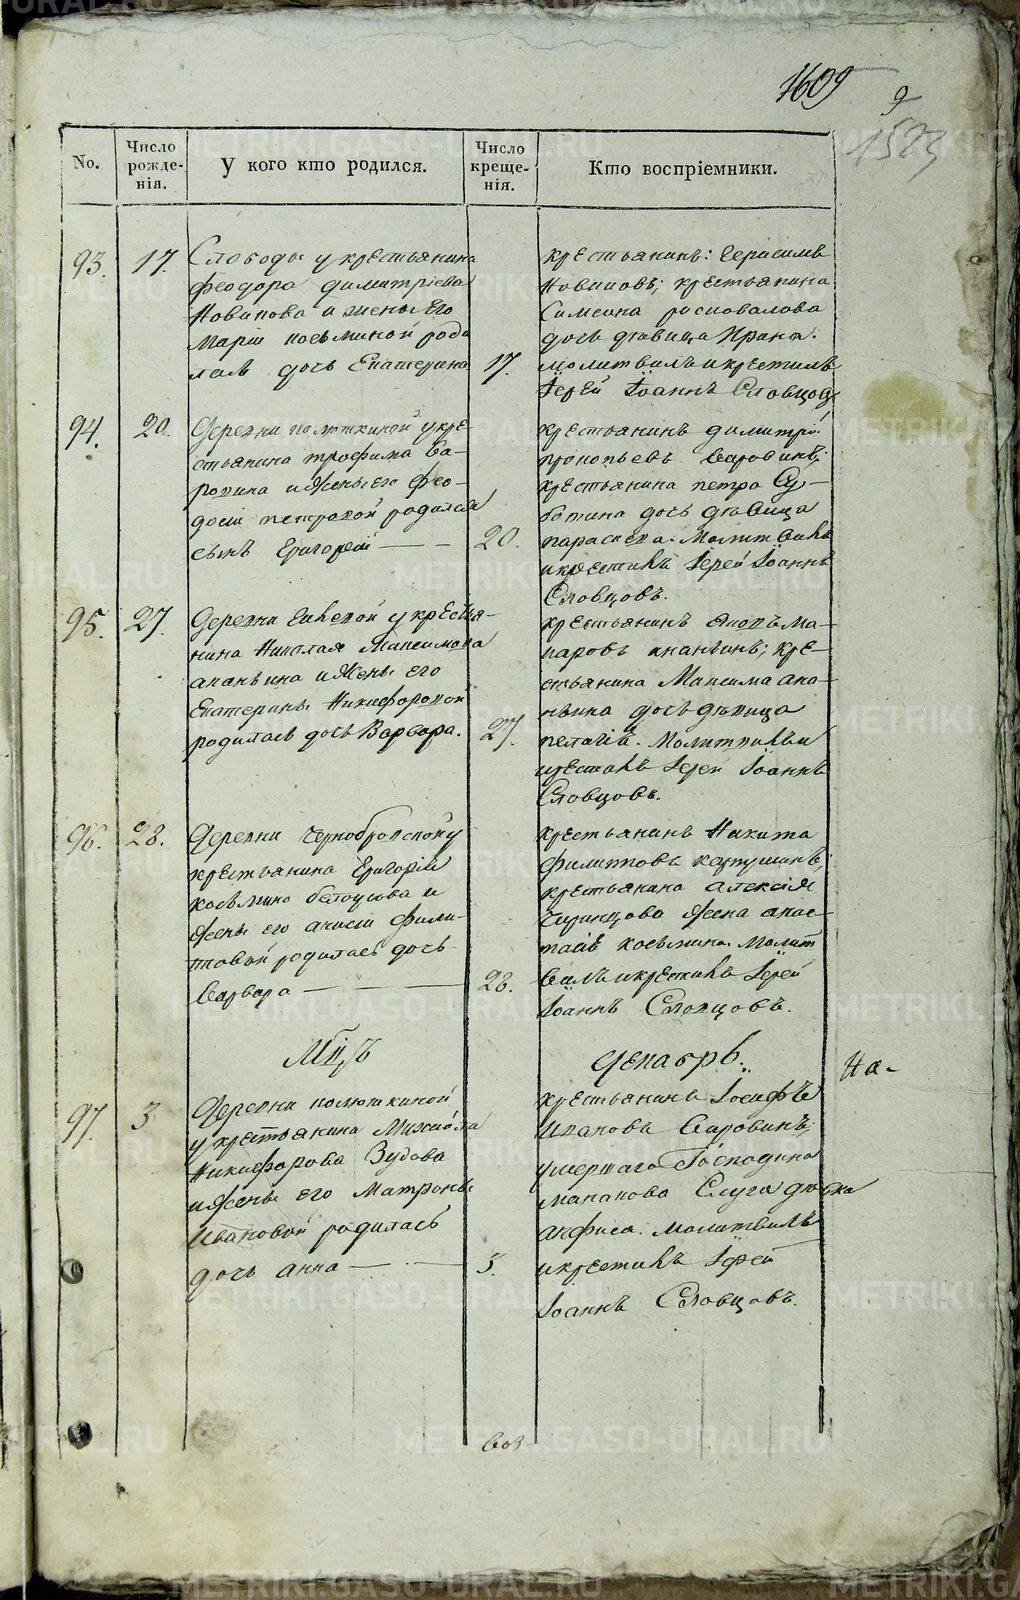 1609
9
1523
No.
Число рожде-нія.
У кого кто родился.
Число креще-нія.
Кто воспріемники.
93.
17.
Слободы у крестьянина
Феодора Димитріева
Новикова и жены его
Маріи косьминой роди
лась дочь Екатерина
17.
крестьянинъ: Герасимъ
Новиковъ; крестьянина
Симеона
дочь дѣвица Ирина.
молитвилъ и крестилъ
Іерей Іоаннъ Словцовъ
94.
20.
Деревни полюткиной у кре-
стьянина трофима Ва-
ровина и жены его Фео-
досіи петровой родился
сынъ Григорій
20.
крестьянинъ димитрій
прокопьевъ Варовинъ;
крестьянина петра Су-
ботина дочь дѣвица
параскева. Молитвилъ
и крестилъ Іерей Іоаннъ
Словцовъ.
95.
27.
Деревни Ключевой у крестья-
нина Николая Максимова
ананьина и жены его
Екатерины Никифоровой
родилась дочь Варвара.
27.
крестьянинъ Яковъ Ма-
каровъ ананьинъ; кре-
стьянина Максима ана-
ньина дочь дѣвица
пелагія. Молитвилъ и
крестилъ Іерей Іоаннъ
Словцовъ.
96.
28.
Деревни Чернобровской у
крестьянина Григорія
косьмина белоусова и
жены его анисіи Фили-
повой родилась дочь
Варвара
28.
крестьянинъ Никита
Филиповъ
крестьянина алексія
жена анас-
тасія косьмина. Молит
вилъ и крестилъ Іерей
Іоаннъ Словцовъ.
Мцъ
Декабрь.
На-
97.
3
Деревни полюткиной
у крестьянина Михайла
Никифорова Зудова
и жены его Матроны
Ивановой родилась
дочь анна
3.
крестьянинъ Іосифъ
Ивановъ Варовинъ;
умершаго Господина
манакова Слуга дѣвка
анфиса. молитвилъ
и крестилъ Іерей
Іоаннъ Словцовъ.
METRIKI.GASO-URAL.RU